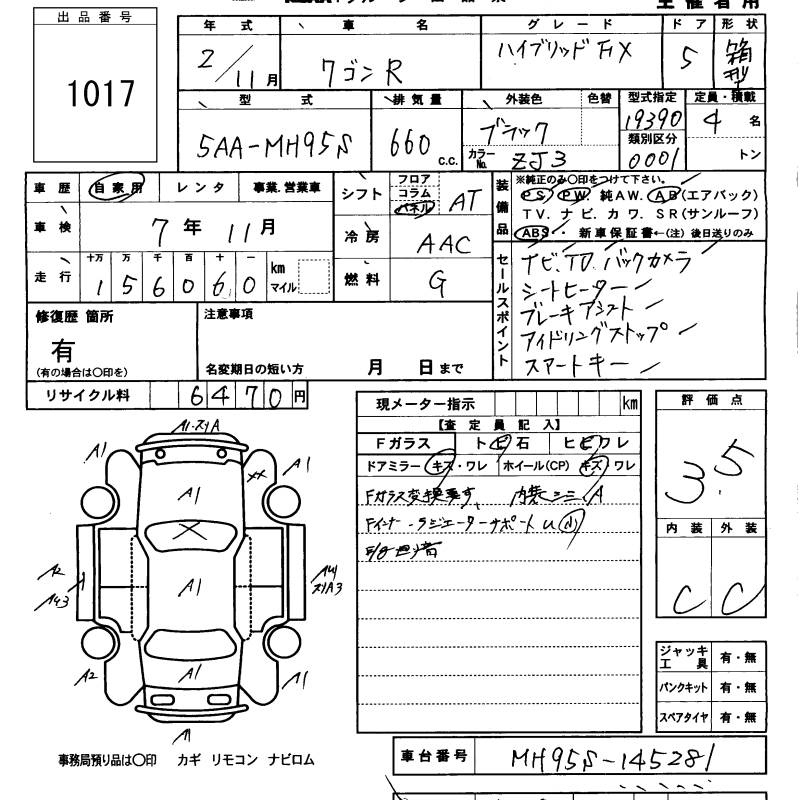 主催者用
出品番号
1017
年式 車名 グレード ドア 形状
2/11月 ワゴンR ハイブリッドFX 5 箱型
型式 排気量 外装色 色替 型式指定 定員・積載
5AA-MH95S 660 c.c. ブラック 19390 4名
カラーNo. ZJ3 類別区分 0001 トン
車歴 自家用 レンタ 事業.営業車
車検 7年11月
走行 十万 万 千 百 十 一
156060 km マイル
シフト フロア コラム パネル AT
冷房 AAC
燃料 G
装備品
※純正のみ○印をつけて下さい。
PS PW. 純AW. AB(エアバック)
TV. ナビ. カワ. SR(サンルーフ)
ABS・ 新車保証書←(注) 後日送りのみ
セールスポイント
ナビ.TV.バックカメラ
シートヒーター
ブレーキアシスト
アイドリングストップ
スマートキー
修復歴 箇所
有
(有の場合は○印を)
注意事項
名変期日の短い方 月 日まで
リサイクル料 6470円
現メーター指示 km
【査定員記入】
Fガラス トビ石 ヒビワレ
ドアミラー キズ・ワレ ホイール(CP) キズ・ワレ
Fガラス交換要す、内装シミA
Fインナー・ラジエーターサポートU小
評価点
3.5
内装 外装
C C
A1・スリA
A1 XX A1
A1
X
A2 A1 A4
A43 スリA3
A2 A1 A1
A1
ジャッキ工具 有・無
パンクキット 有・無
スペアタイヤ 有・無
事務局預り品は○印 カギ リモコン ナビロム
車台番号 MH95S-145281